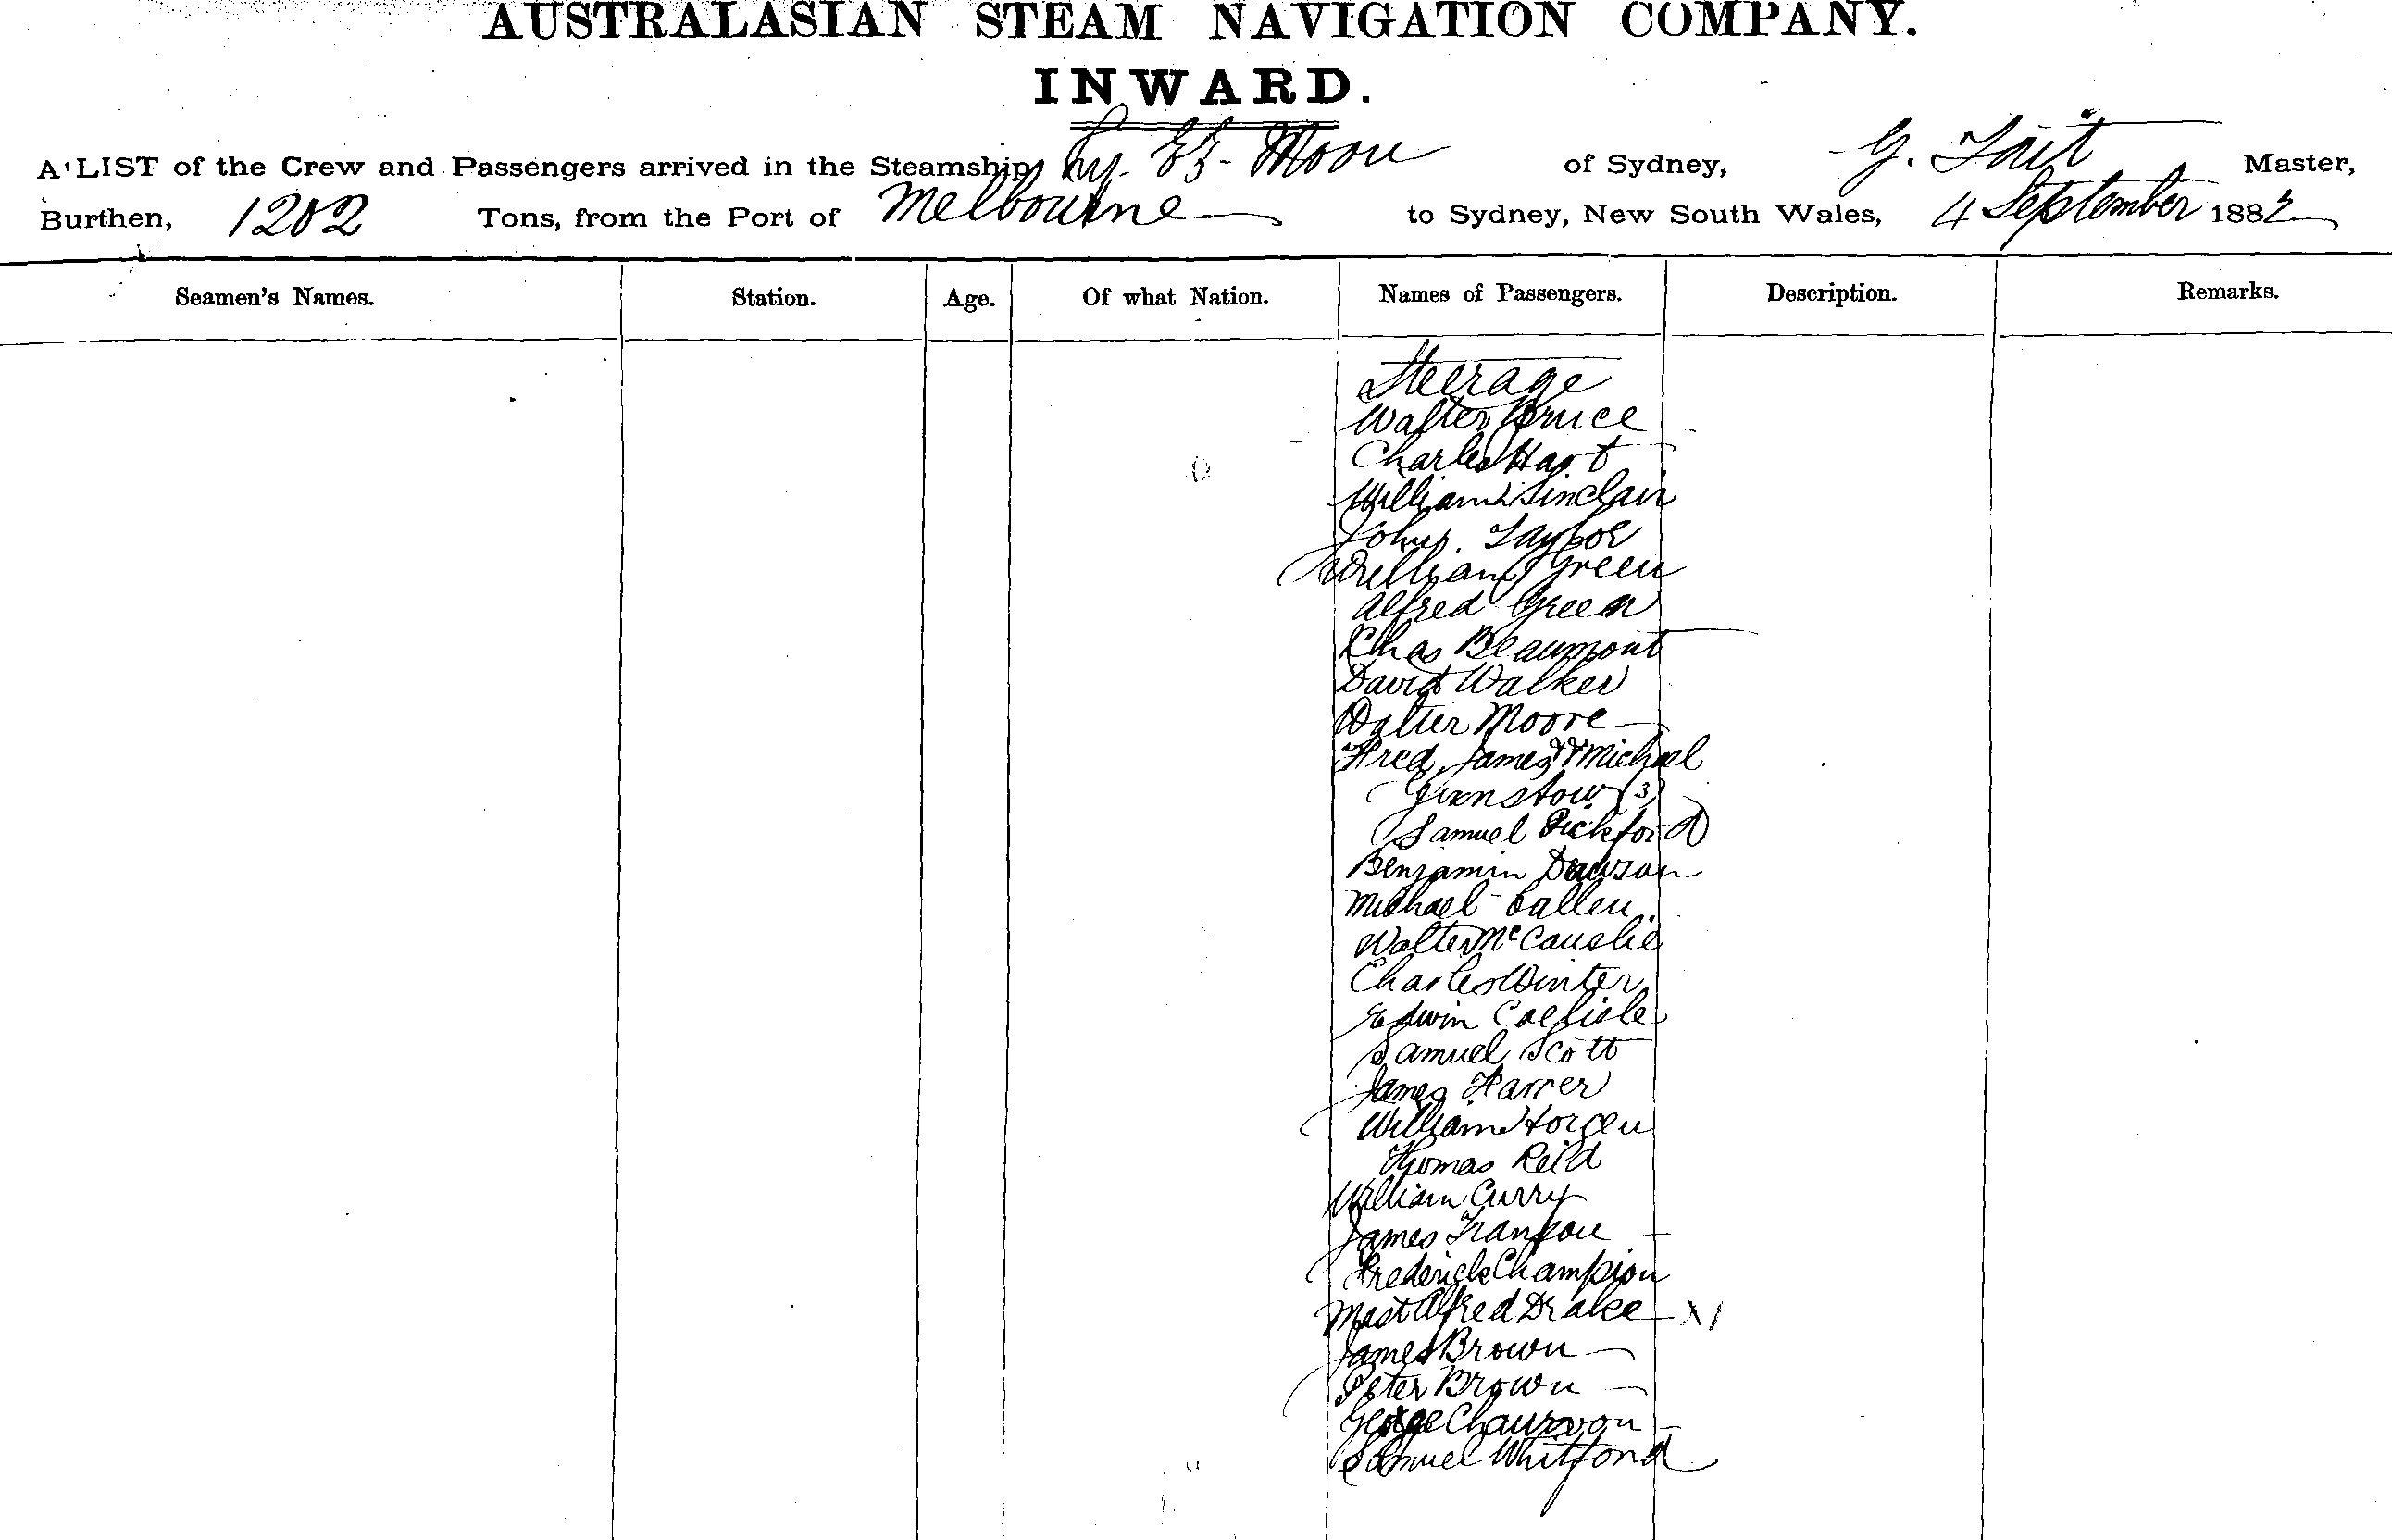 AUSTRALASIAN STEAM NAVIGATION COMPANY.
INWARD.
A LIST of the Crew and Passengers arrived in the Steamship Ly-EE-Moon of Sydney, G. Tait Master,
Burthen, 1202 Tons, from the Port of Melbourne to Sydney, New South Wales, 4 September 1882
Seamen's Names. Station. Age. Of what Nation. Names of Passengers. Description. Remarks.
Steerage
Walter Bruce
Charles Hart
William Sinclair
John Taylor
William Green
Alfred Green
Chas Beaumont
David Walker
Walter Moore
Fred, James & Michael
(3)
Samuel Pickford
Benjamin Dawson
Michael
Walter
Charles Winter
Edwin Carlisle
Samuel Scott
James
William
Thomas Reid
William Curry
James
Frederick Champion
Mast Alfred Drake
James Brown
Peter Brown
George
Samuel Whitford